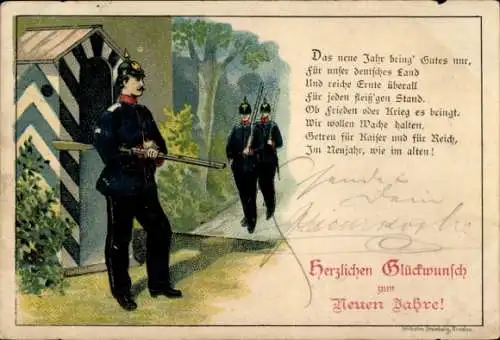 Das neue Jahr bring' Gutes nur,
Für unser deutsches Land
Und reiche Ernte überall
Für jeden fleiß'gen Stand.
Ob Frieden oder Krieg es bringt,
Wir wollen Wache halten,
Getreu für Kaiser und für Reich,
Im Neujahr, wie im alten!
Sendet
Dein
Herzlichen Glückwunsch
zum
Neuen Jahre!
Wilhelm